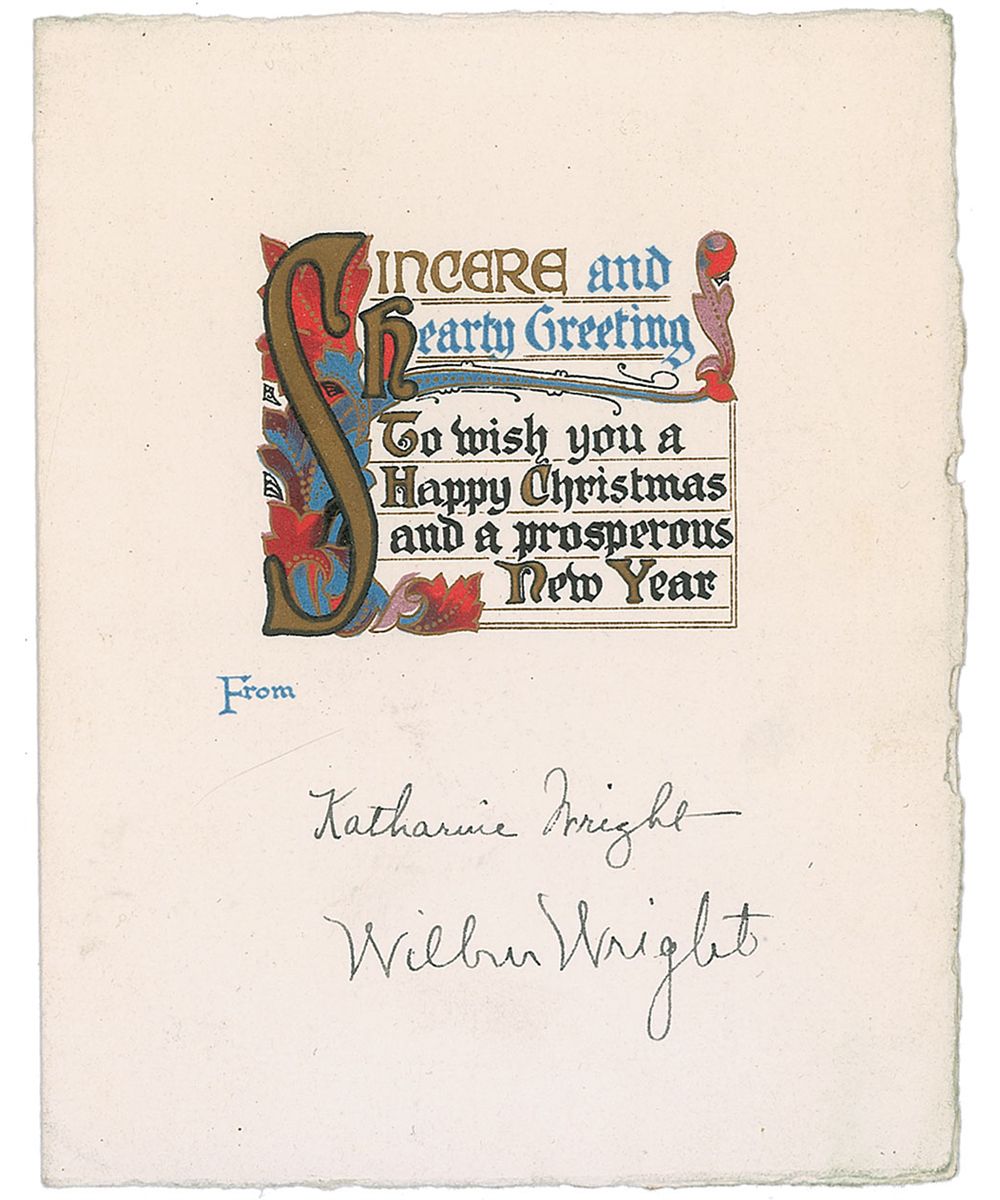 SINCERE and
hearty Greeting
To wish you a
Happy Christmas
and a prosperous
New Year
From
Katharine Wright
Wilbur Wright